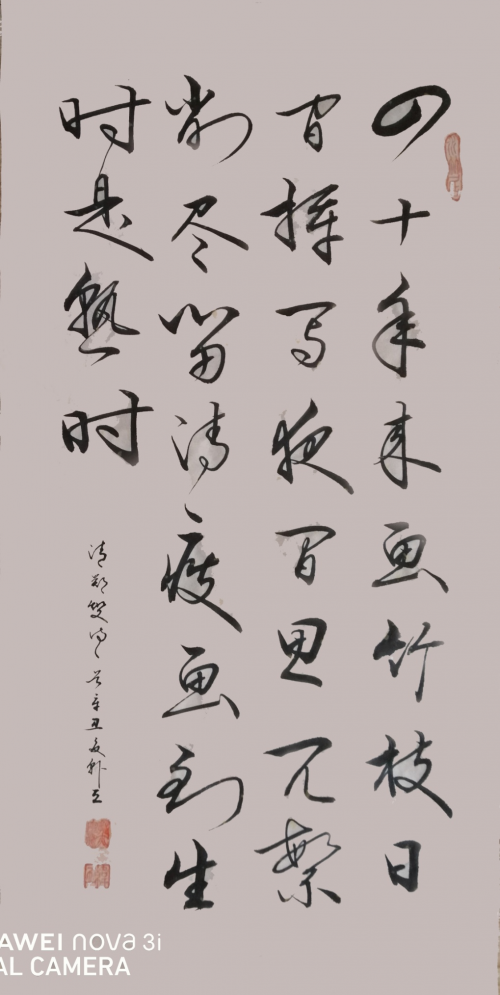 四十年来画竹枝日
间挥写夜间思冗繁
削尽留清瘦画到生
时是熟时
清郑燮诗 岁辛丑夏
AWEI nova 3i
AL CAMERA